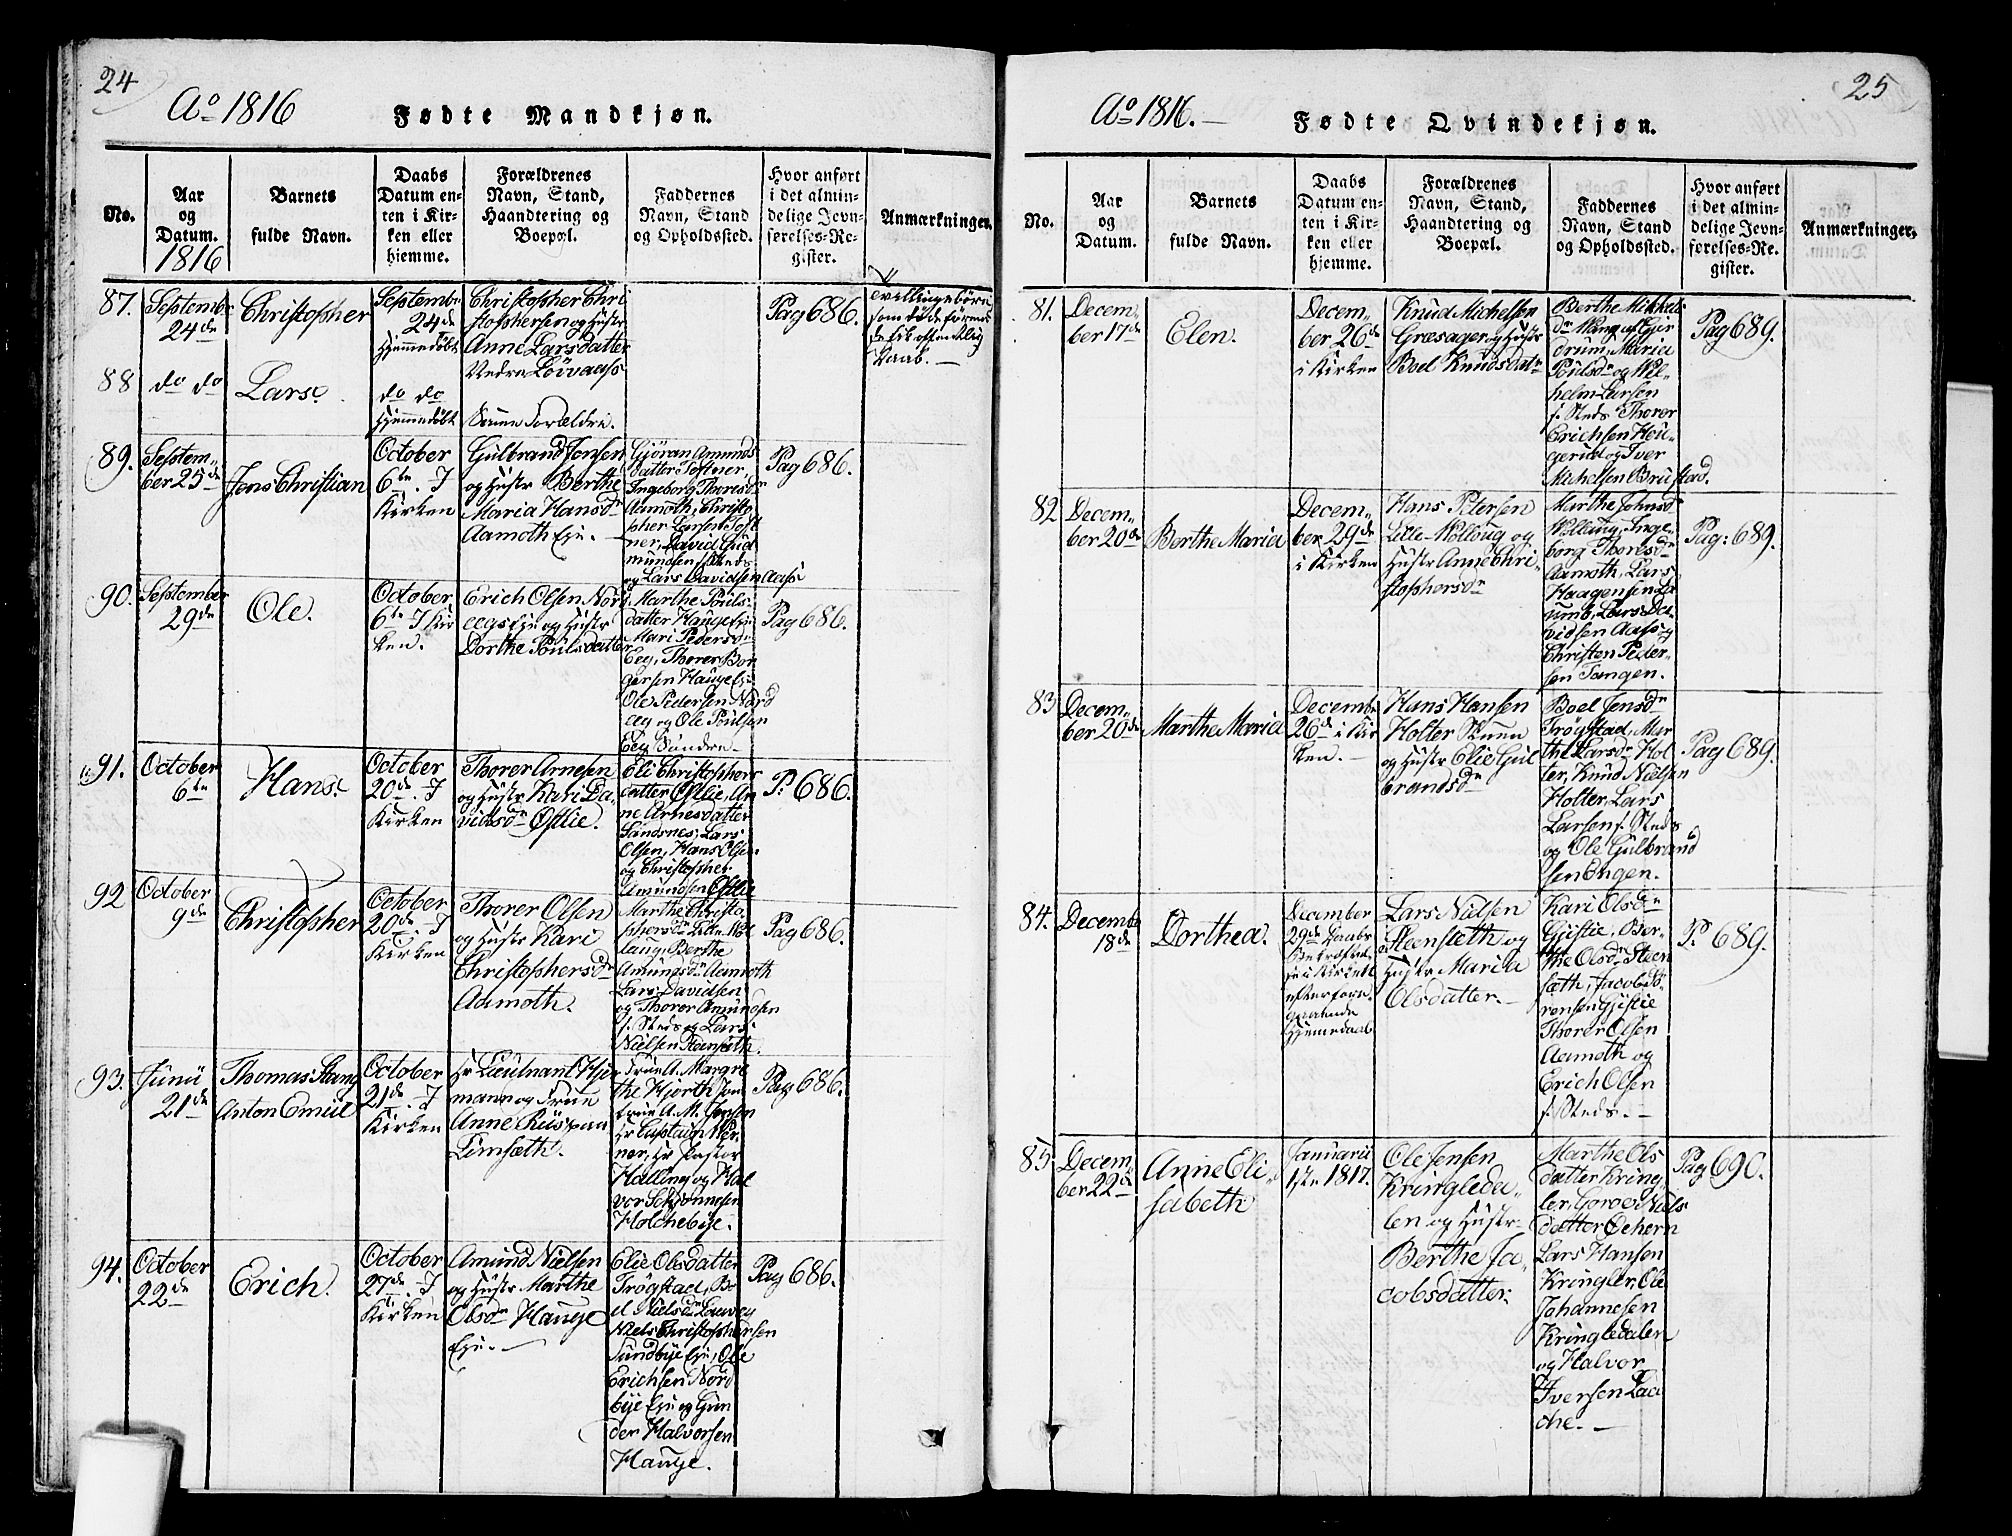 24
Ao 1816
Fødte Mandkjøn.
No.
Aar
og
Datum.
1816
Barnets
fulde Navn.
Daabs
Datum en-
ten i Kir-
ken eller
hjemme.
Forældrenes
Navn, Stand,
Haandtering og
Boepæl.
Faddernes
Navn, Stand
og Opholdssted.
Hvor anført
i det almin-
delige Jevn-
førelses-Re-
gister.
Anmærkninger.
87.
Septembr
24de
Christopher
Septembr
24de
Hjemmedøbt
Christopher Chri
stophersen og Hustr
Anne Larsdatter
Nedre Løvaas
Pag 686.
Tvillingebørn
som døde førend
de fik offentlig
Daab.
88
do do
Lars.
do do
Hjemmedøbt
Samme Forældre.
89.
Septem-
ber 25de
Jens Christian
October
6te. I
Kirken
Gulbrand Jensen
og Hustr Berthe
Maria Hansdr
Aamoth Eje.
Gjøran Amunds
datter Tostner,
Ingeborg Thoresdr
Aamoth, Christo
pher Larsen Tost
ner, David Gud
mundsen f. Steds
og Lars Davidsen Aass
Pag 686.
90.
September
29de
Ole.
October
6te I Kir
ken.
Erich Olsen Nord
eegs Eje og Hustr
Dorthe Poulsdatter
Marthe Pouls-
datter Hauge Eje
Mari Pedersdr
Eeg, Thorer Bor
gersen Hauge Eje
Ole Pedersen Nord
eeg og Ole Poulsen
Eeg Søndre.
Pag 686.
91.
October
6te
Hans.
October
20de. I
Kirken
Thorer Arnesen
og Hustr Kari Da-
vidsdr Østlie.
Eli Christophers
datter Østlie, An
ne Arnesdatter
Sandsnes, Lars
Olsen, Hans Olsen
og Christopher
Amundsen Østlie
P: 686.
92
October
9de
Christopher
October
20de. I
Kirken
Thorer Olsen
og Hustr Kari
Christophersdr
Aamoth.
Marthe Christo
phersdr Lille Wol
laug, Berthe
Amundsdr Aamoth
Lars Davidsen
og Thorer Amundsen
f. Steds og Lars
Nielsen Steensæth.
Pag 686.
93.
Junii
21de
Thomas Stang
Anton Emiil
October
21de. I
Kirken
Hr Lieutnant Hjer
mann og Frue
Anne
Linsæth.
Frue A. Margre
the Hjorth, Jom
frue A. M. Jensen
Hr Captain Wer
ner, Hr Pastor
Halling og Hal
vor Schrønnesen
Holchebye.
Pag 686.
94.
October
22de
Erich.
October
27de. I
Kirken
Amund Nielsen
og Hustr Marthe
Olsdr Hauge
Eje.
Elie Olsdatter
Trøgstad, Bo
el Nielsdr Louvey
Niels Christophersen
Sundbye Eje, Ole
Erichsen Nord
bye Eje og Gun
der Halvorsen
Hauge.
Pag 686.
25
Ao 1816.
Fødte Qvindekjøn.
No.
Aar
og
Datum.
Barnets
fulde Navn.
Daabs
Datum en-
ten i Kir-
ken eller
hjemme.
Forældrenes
Navn, Stand,
Haandtering og
Boepæl.
Faddernes
Navn, Stand
og Opholdssted.
Hvor anført
i det almin-
delige Jevn-
førelses-Re-
gister.
Anmærkninger.
81.
Decem-
ber 17de
Elen.
Decem-
ber 26de
i Kirken
Knud Michelsen
Græsager og Hustr
Boel Knudsdatr
Berthe Mikkels
dr Wang af Gjer
drum, Maria
Poulsdr og Wil-
helm Larsen
f. Steds Thorer
Erichsen Hou-
gerud og Iver
Michelsen Brustad.
Pag 689.
82
Decem-
ber 20de
Berthe Maria
Decem-
ber 29de
i Kirken
Hans Petersen
Lille Wollaug og
Hustr Anne Chri-
stophersdr
Marthe Johnsdr
Wollaug, Inge-
borg Thoresdr
Aamoth, Lars
Haagensen La
umb, Lars Da-
vidsen Aass og
Christen Peder-
sen Tangen.
Pag: 689.
83
Decem-
ber 20de
Marthe Maria
Decembr
26de i Kir
ken.
Hans Hansen
Holter Skuen
og Hustr Elie Gul
brandsdr
Boel Jensdr
Trøgstad, Mar
the Larsdr Hol
ter, Knud Nielsen
Holter, Lars
Larsen f. Steds
og Ole Gulbrand
sen Engen.
Pag 689.
84.
Decembr
18de
Dorthea.
December
29de Daabs
Bekræftel
se i Kirken
efter foregaaende
Hjemedaab
Lars Nielsen
Steensæth og
Hustr Maria
Olsdatter.
Kari Olsdr
Gjistie, Ber-
the Olsdr Steen
sæth, Jacob Sø-
rensen Gjistie
Thorer Olsen
Aamoth og
Erich Olsen
f. Steds.
P: 689.
85.
Decem-
ber 22de
Anne Eli-
sabeth
Januarii
1ste 1817.
Ole Jensen
Kringleda-
len og Hustr
Berthe Ja-
cobsdatter.
Marthe Ols
datter Kring-
ler, Goroe Niels
datter Ochern
Lars Hansen
Kringler, Ole
Johannesen
Kringledalen
og Halvor
Iversen Laa
che.
Pag 690.